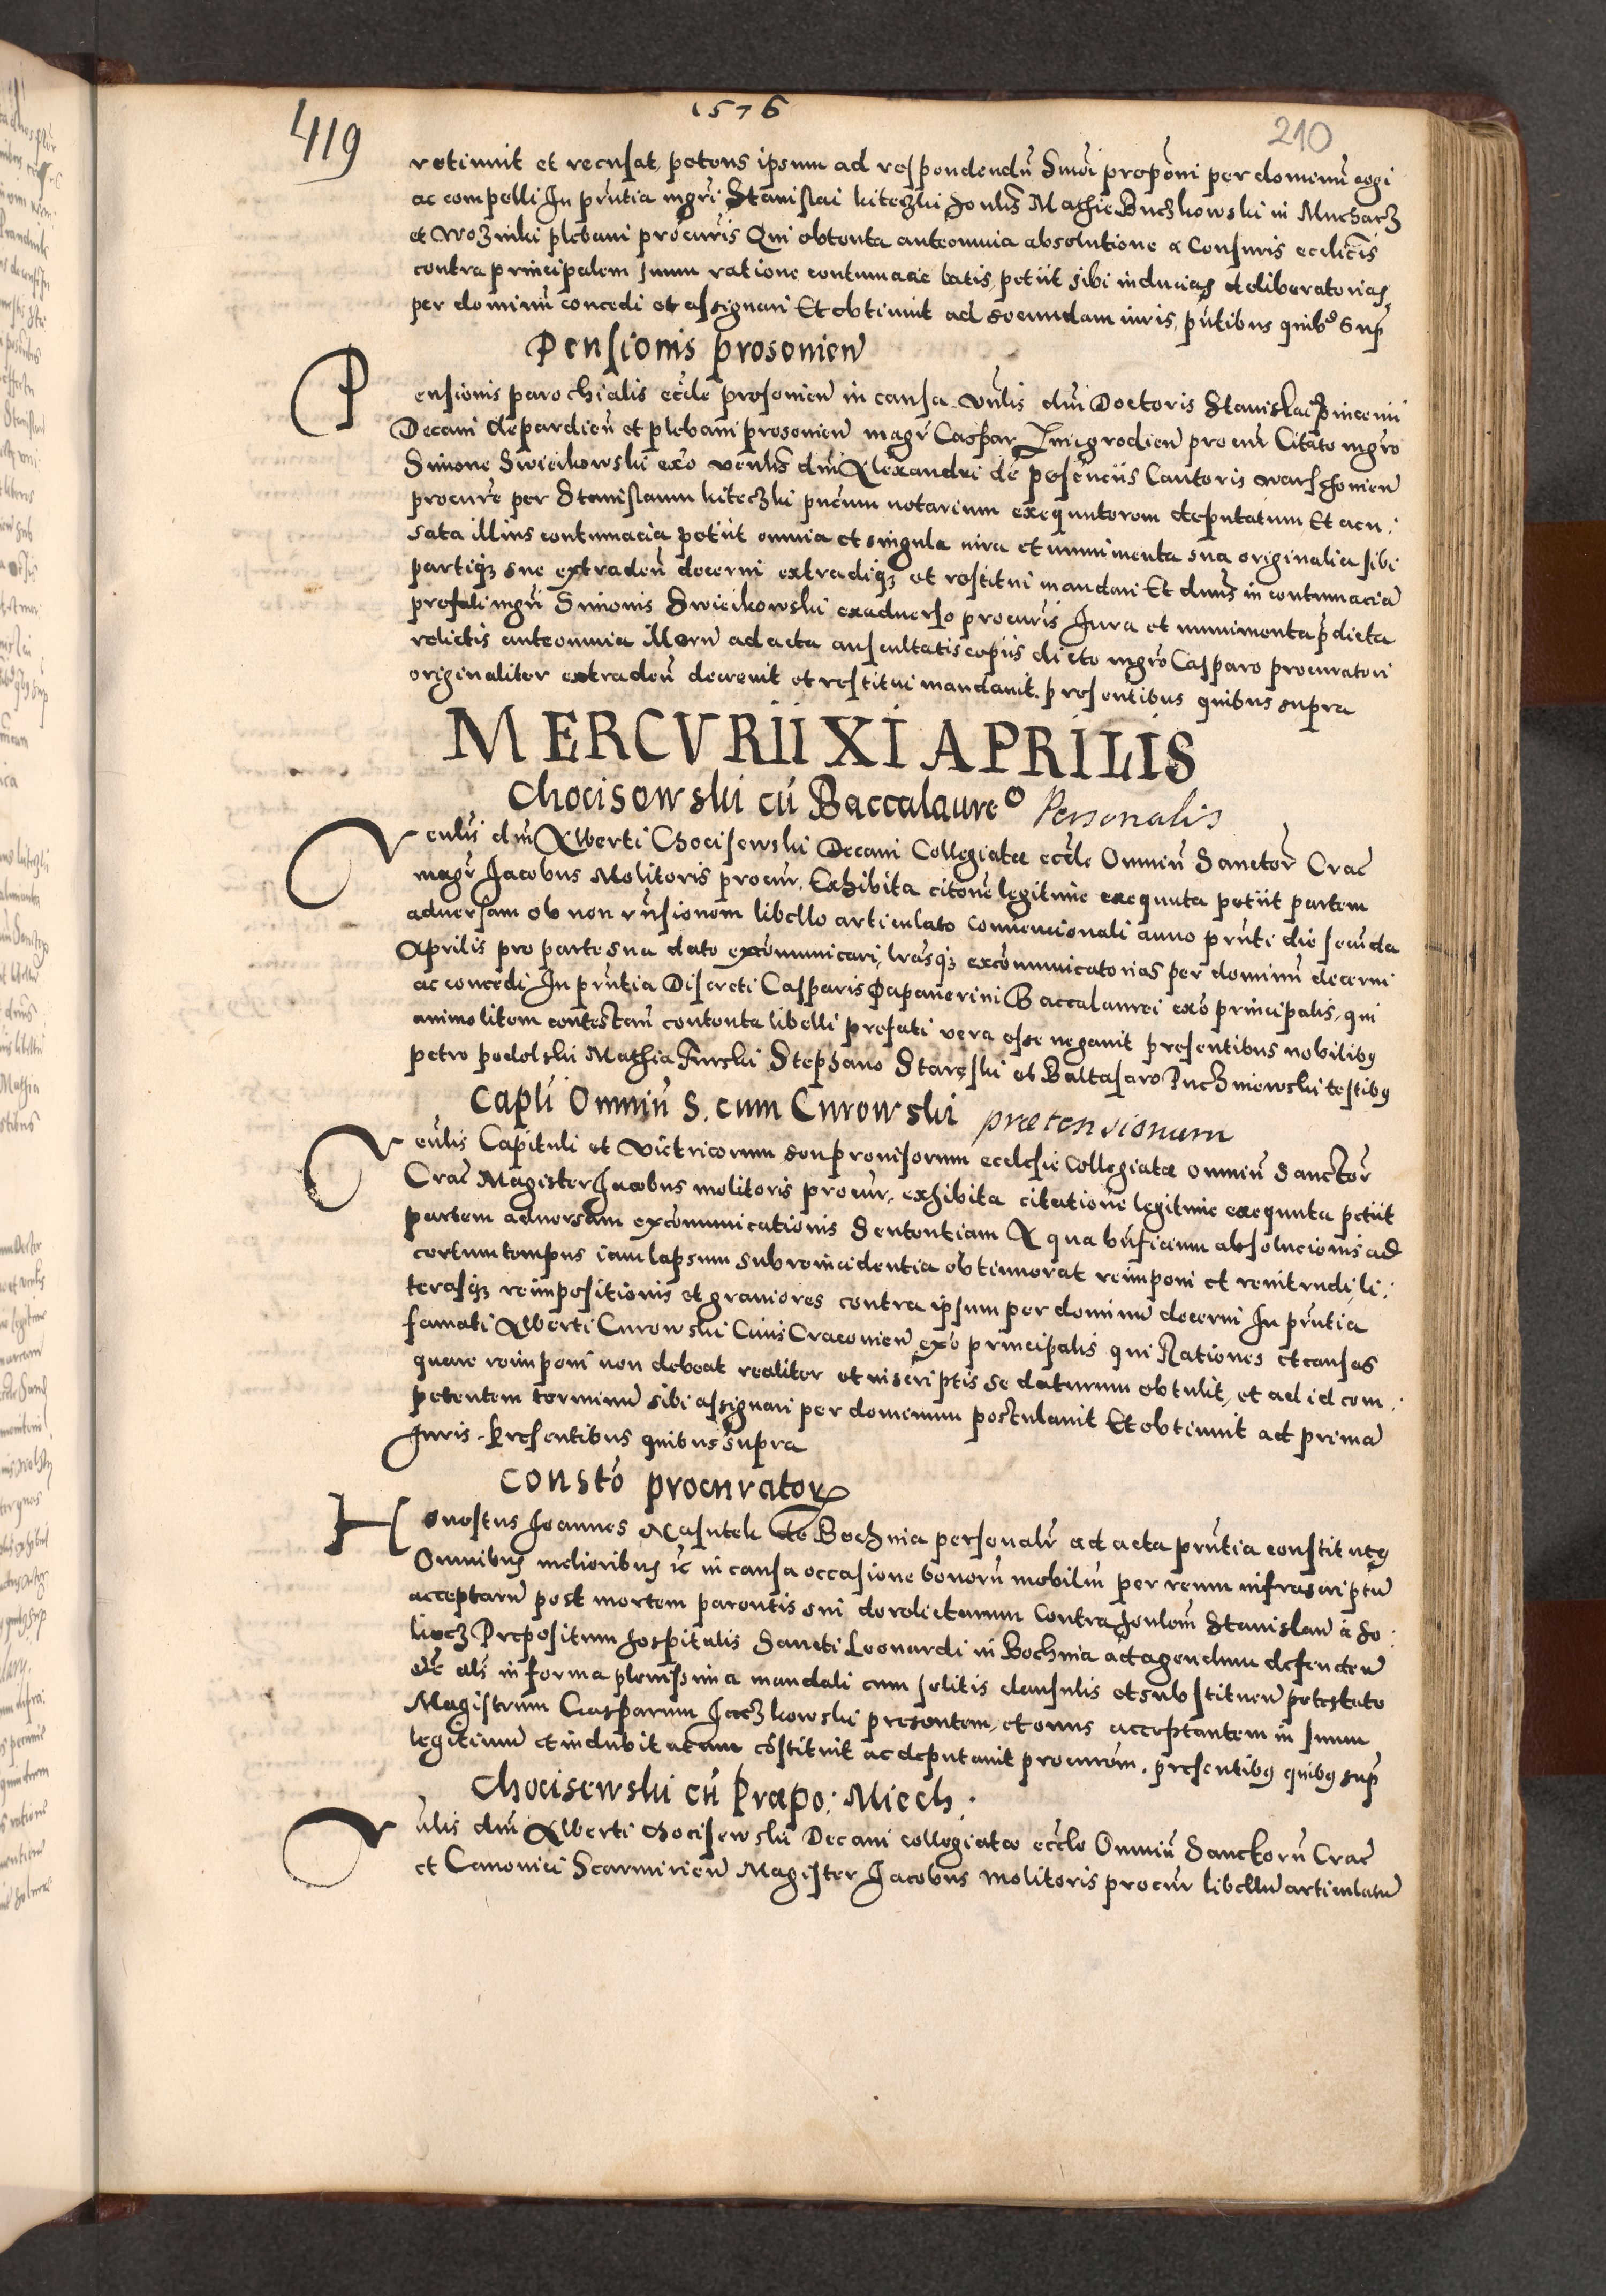 1576
419
210
retinuit et recusat, petens ipsum ad respondendū Smōi propōni per dominū cogi
ac compelli In prūtia mgrī Stanislai kiteczki honlīs Mathie Buczkowski in Mucharz
et Wozniki plebani procurīs Qui obtenta anteomnia absolutione a Censuris ecclīcis
contra principalem suum ratione contumacie latis, petiit sibi inducias deliberatorias
per dominū concedi et assignari Et obtinuit ad secundam iuris, pūtibus quibs sup̄
Pensionis prosonien̄
Pensionis parochialis eccłe prosonien̄ in causa vnłis dnī Doctoris Stanislai
Decani depardien̄ et plebani prosonien̄ magr̄ Caspar Zmigrodien̄ procur̄ Citato mgrō
Simone Swiecikowski exō venlīs dnī Alexandri de pesenciis Cantoris warschonien̄
procurē per Stanislaum kiteczki pūcum notarium exequutorem deputatum Et acu:
sata illius contumacia petiit omnia et singula iura et munimenta sua originalia sibi
partiqȝ sue extraden̄ decerni extradiqȝ et restitui mandari Et dnūs in contumaciā
prefati mgrī Simonis Swiecikowski exaduerso procurīs Iura et munimenta p̄dicta
relictis anteomnia illorū ad acta auscultatis copiis dicto mgrō Casparo procuratori
originaliter extraden̄ decreuit et restitui mandauit. presentibus quibus supra
MERCVRII XI APRILIS
Chocisowski cū Baccalaureo Personalis
Venlīs dnī Alberti Chocisewski Decani Collegiatæ eccłe Omniū Sanctor̄ Crac̄
magr̄ Iacobus Molitoris procur̄. Exhibita citōne legitime exequuta petiit partem
aduersam ob non rn̄sionem libello articulato conuencionali anno prn̄ti die secūda
Aprilis pro parte sua dato excōmunicari, lrāsqȝ excōmunicatorias per dominū decerni
ac concedi In prn̄tia Discreti Casparis Papauerini Baccalaurei exō principalis, qui
animo litem contestan̄ contenta libelli prefati vera esse negauit presentibus nobilibȝ
petro podolski Mathia Furski Stephano Starȩski et Baltasaro Puchniowski testibȝ
Caplī Omniū S. cum Curowski prætensionum
Venlīs Capituli et victricorum seu prouisorum ecclesie Collegiatæ omniū Sanctor̄
Crac̄ Magister Iacobus molitoris procur̄. exhibita citatione legitime exequuta petiit
partem aduersam excōmunicationis Sententiam A qua bn̄ficium absolucionis ad
certum tempus iam lapsum sub reincidentia obtinuerat reimponi et reintrudi, li:
terasqȝ reimpositionis et grauiores contra ipsum per dominū decerni In prn̄tia
famati Alberti Curowski Ciuis Cracouien̄ exō principalis qui Rationes et causas
quare reimponi non debeat realiter et in scriptis se daturum obtulit, et ad id com:
petentem terminū sibi assignari per dominum postulauit Et obtinuit ad primā
Iuris. Presentibus quibus supra
Constō procurator
Honestus Ioannes Masutek de Bochnia personalr̄ ad acta prn̄tia constitutȝ
Omnibus melioribus ic̄ in causa occasione bonorū mobiliū per reum infrascriptū
acceptarū post mortem parentis sui derelictorum contra honlem Stanislaū à Ho:
liecz Prepositum hospitalis Sancti Leonardi in Bochnia ad agendum defenden̄
etc̄ als̄ in forma plenissima mandati cum solitis clausulis et substituen̄ potestate
Magistrum Casparum Iaczkowski presentem, et onus acceptantem in suum
legitimū et indubitatum cōstituit ac deputauit procurōm. presentibȝ quibȝ sup̄
Chocisewski cū Præpo: Miech:
Vnlis dnī Alberti Chocisewski Decani collegiatæ eccłe Omniū Sanctorū Crac̄
et Canonici Scarmirien̄ Magister Iacobus molitoris procur̄ libellū articulatū